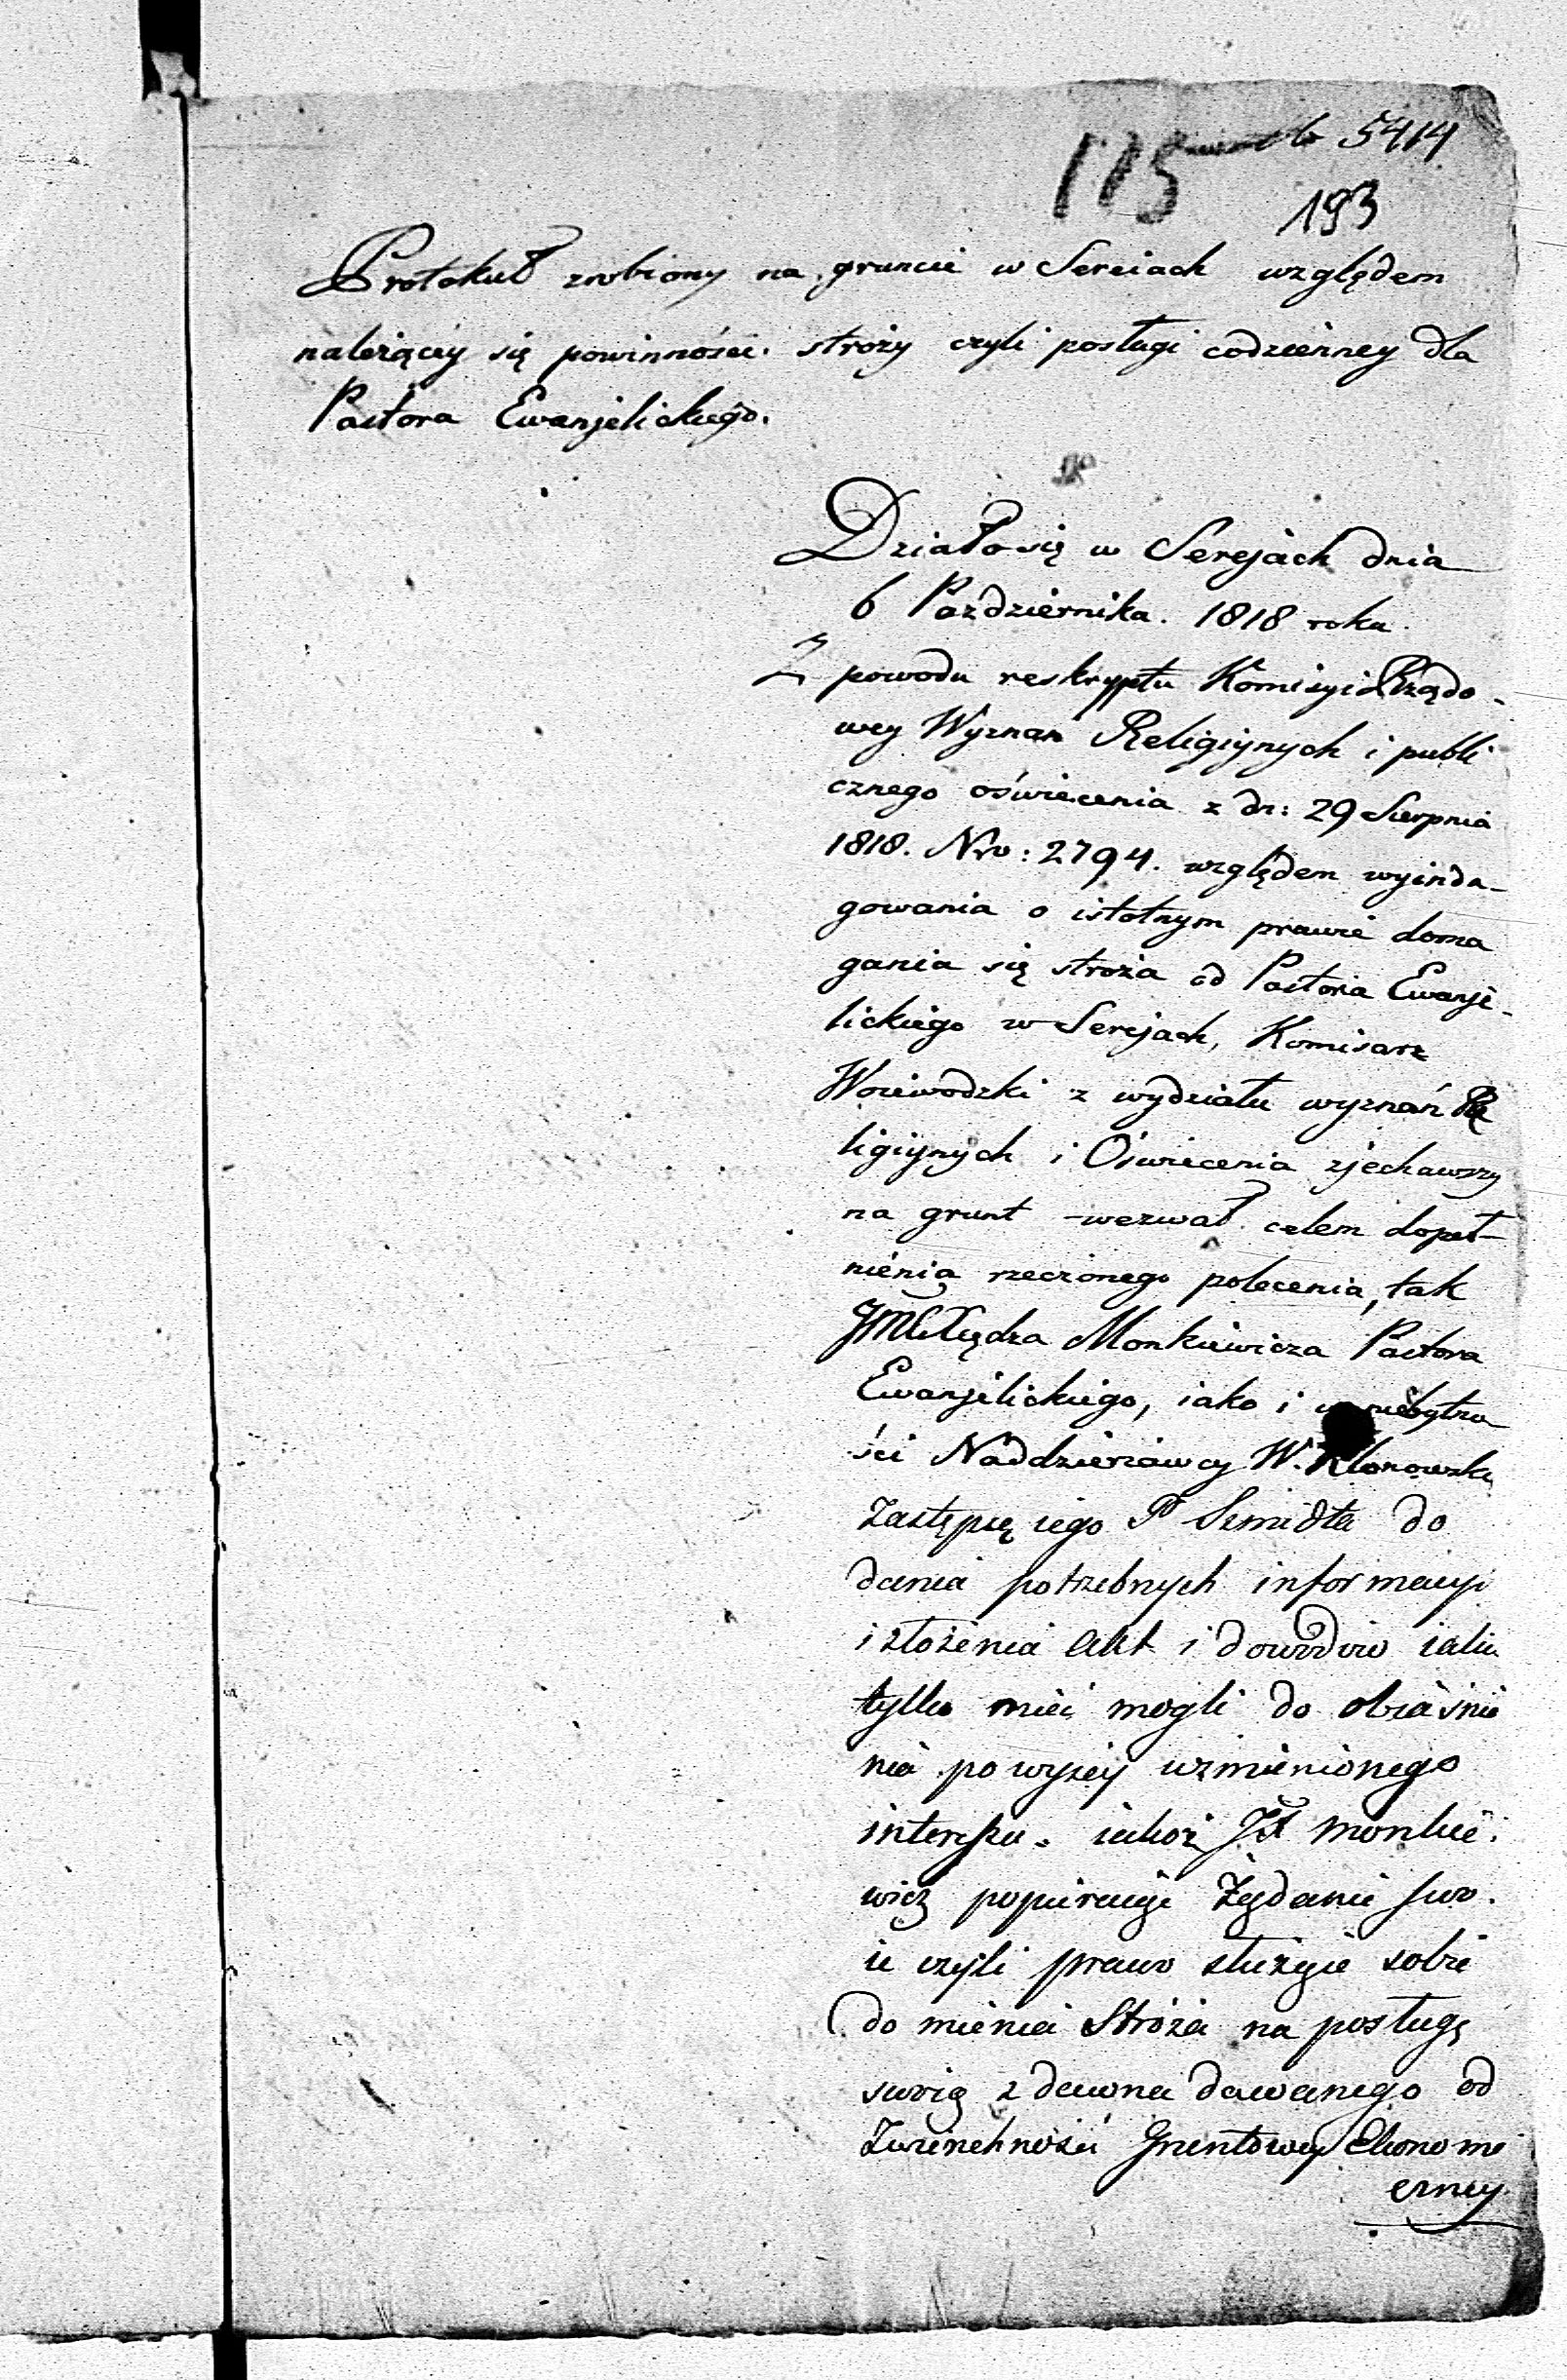 115 5414
193
Protokuł zrobiony na gruncie w Sereiach względem
należącéy się powinności stroży czyli posługi codzienney dla
Pastora Ewanjelickiego.
Działo się w Serejach dnia
6 Października. 1818 roku.
Z powodu reskryptu Komisyi Rządo-
wey Wyznań Religiynych i publi
cznego oświecenia z dn: 29 Sierpnia
1818. Nro: 2794. względem wyinda-
gowania o istotnym prawie doma
gania się stroża od Pastora Ewanje-
lickiego w Serejach, Komisarz
Woiewodzki z wydziału wyznań Re
ligiynych i Oświecenia zjechawszy
na grunt wezwał celem dopeł-
nienia rzeczonego polecenia, tak
JMCXiędza Monkiewicza Pastora
Ewanjelickiego, iako i w niebytno
ści Naddzierżawcy W. Klonowski
Zastępcę iego P Szmidta do
dania potrzebnych informacyi
i złożenia akt i dowodów iakie
tylko mieć mogli do obiaśnie
nia powyżey wzmienionego
interessu. iakoż JX Monkie-
wicz popieraiąc Żądanie swo-
ie czyli prawo służące sobie
do mienia Stróża na posługę
swoię z dawna dawanego od
Zwierzchności Gruntowey Ekonomi
czney